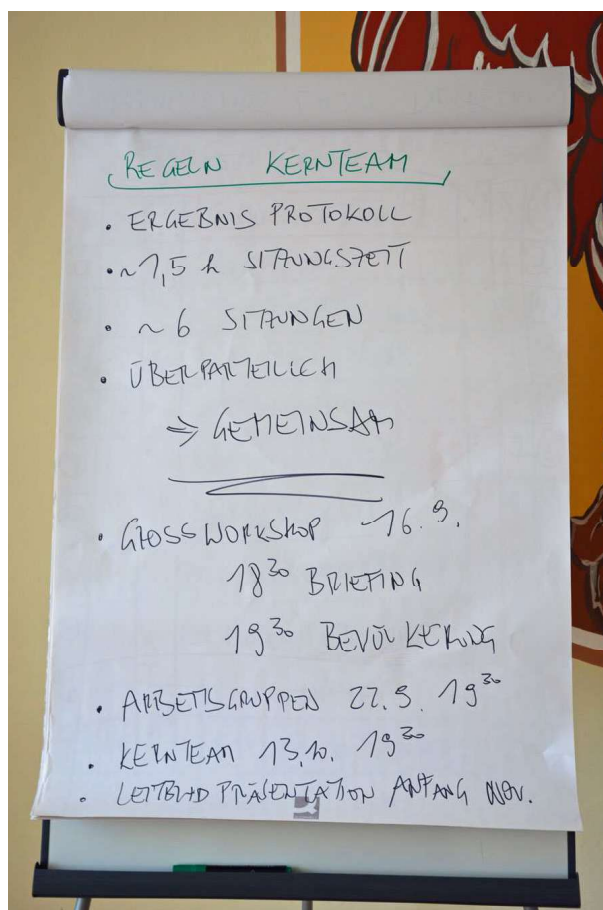 REGELN KERNTEAM
• ERGEBNIS PROTOKOLL
• ~ 1,5 h SITZUNGSZEIT
• ~ 6 SITZUNGEN
• ÜBERPARTEILICH
⇒ GEMEINSAM
• GROSSWORKSHOP 16.9.
18³⁰ BRIEFING
19³⁰ BEVÖLKERUNG
• ARBEITSGRUPPEN 22.9. 19³⁰
• KERNTEAM 13.10. 19³⁰
• LEITBILD PRÄSENTATION ANFANG NOV.